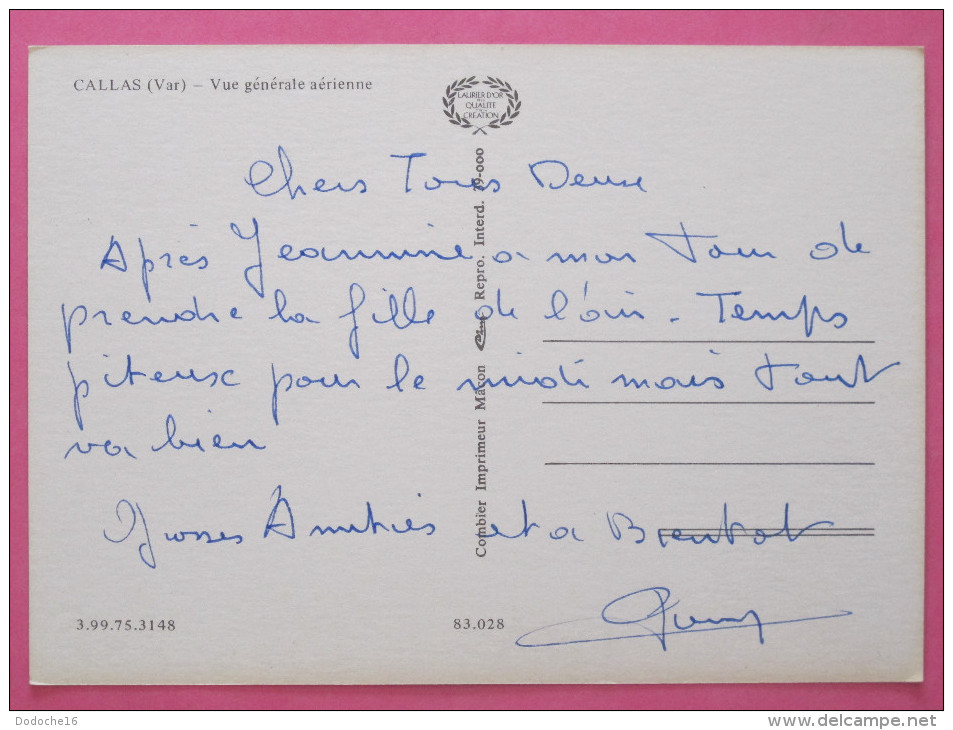 CALLAS (Var) – Vue générale aérienne
LAURIER D'OR
DE LA
QUALITE
CREATION
Chers Tous Deux
Après Jeannine a mon Tour de
prendre la fille de l'air. Temps
piteux pour le midi mais tout
va bien
Grosses Amitiés et a Bientot
Combier Imprimeur Mâcon Repro. Interd. 79-000
3.99.75.3148
83.028
Dodoche16
www.delcampe.net